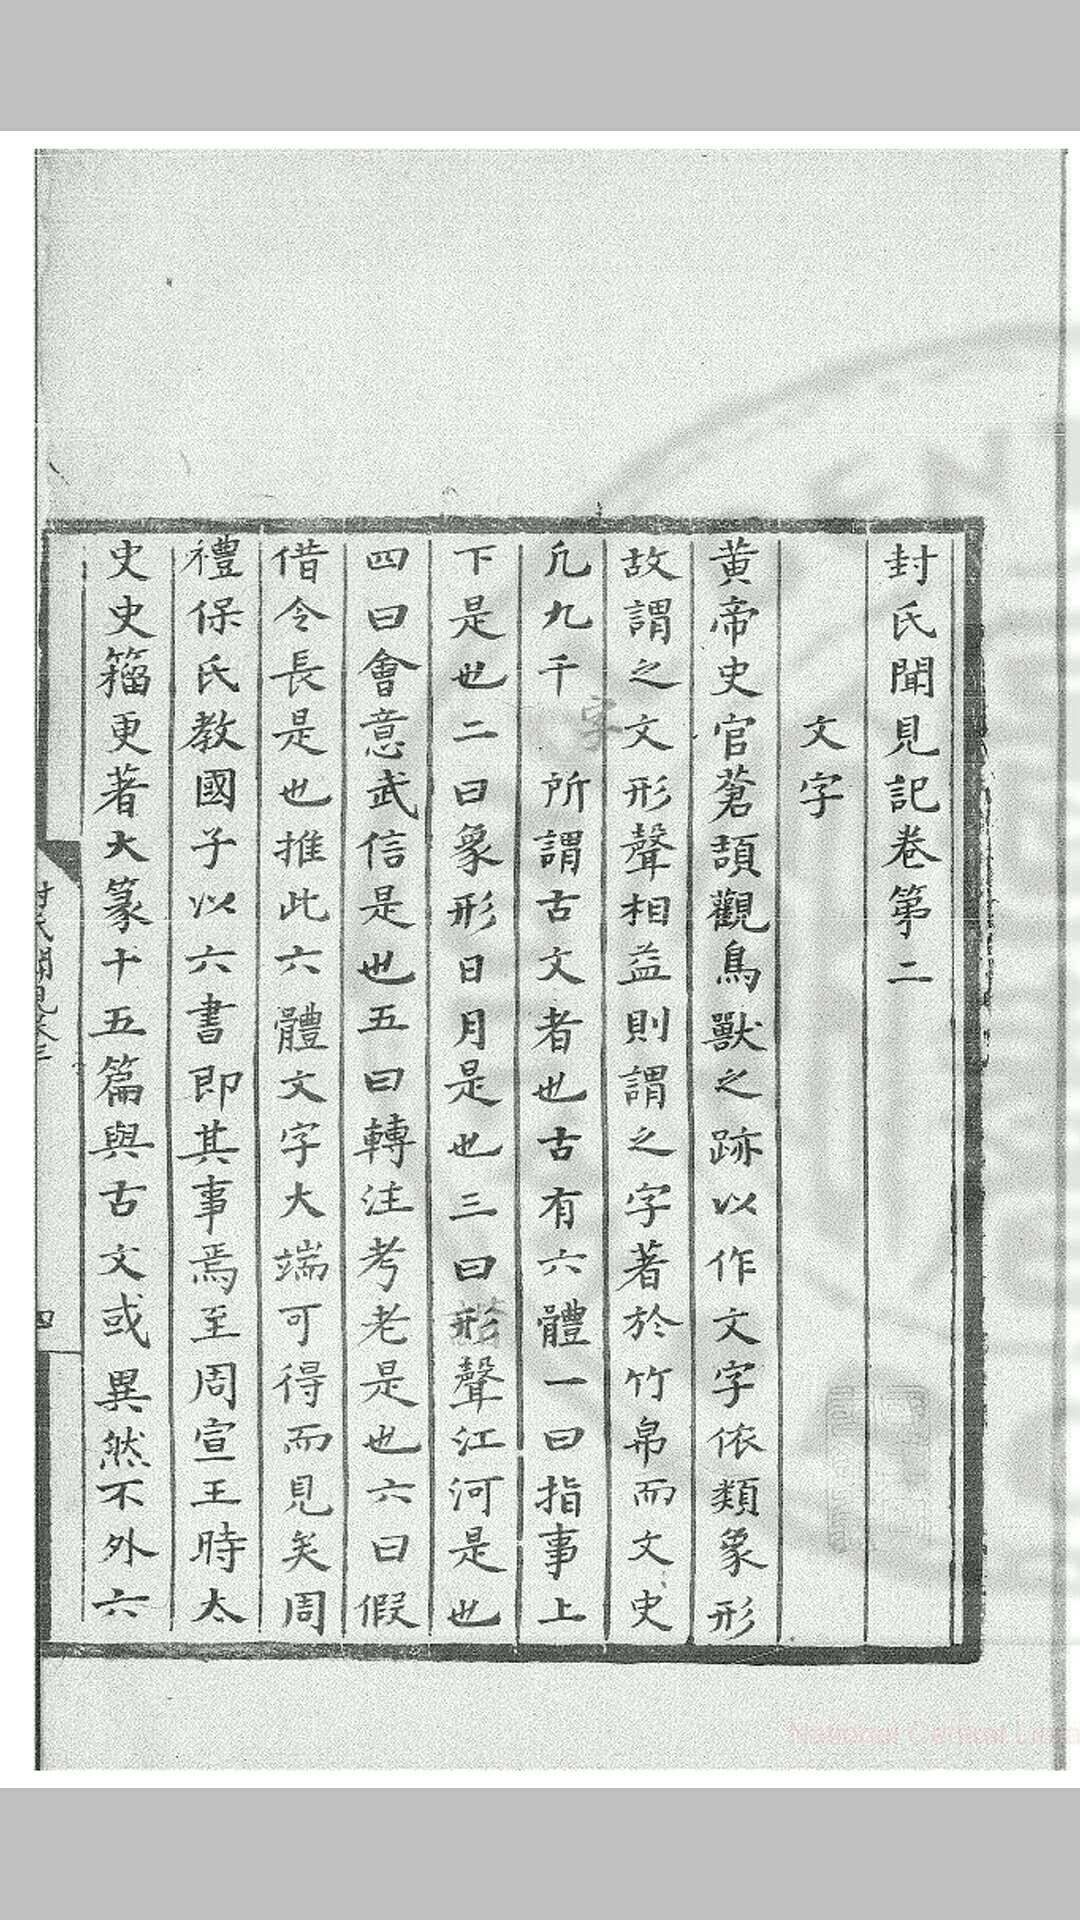 封氏聞見記卷第二
文字
黄帝史官蒼頡觀鳥獸之跡以作文字依類象形
故謂之文形聲相益則謂之字著於竹帛而文史
凢九千字所謂古文者也古有六體一曰指事上
下是也二曰象形日月是也三曰形聲江河是也
四曰會意武信是也五曰轉注考老是也六曰假
借令長是也推此六體文字大端可得而見矣周
禮保氏教國子以六書即其事焉至周宣王時太
史史籀更著大篆十五篇與古文或異然不外六
四
National Central Libra